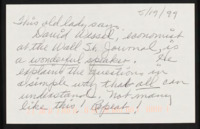 5/19/99
This old lady says
David Wessel, economist
at the Wall St Journal, is
a wonderful speaker. He
explains the questions in
a simple way that all can
understand. Not many
like this! Repeat!